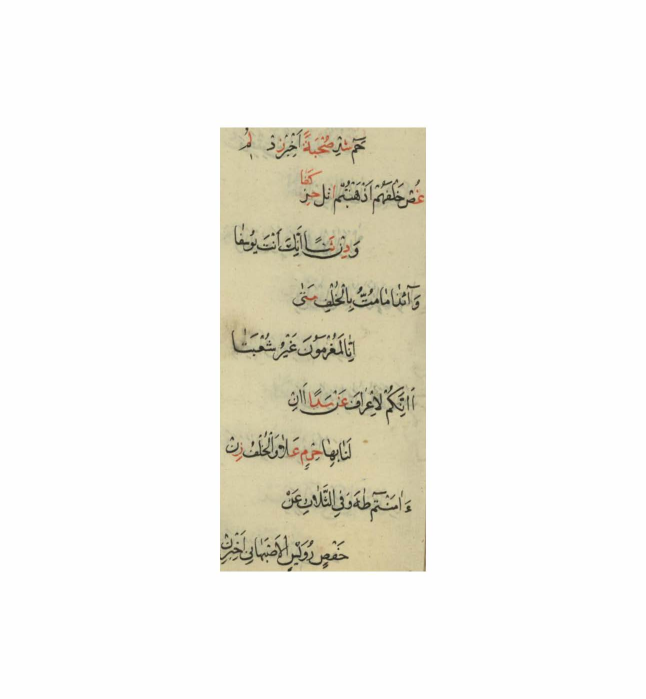 حم شد صحبة أخبر زد لم
غص خلفهم أذهبتم اتل حز كفا
ودن ثنا إنك أنت يوسفا
وآئذا ما مت بالخلف متى
إنا لمغرمون غير شعبتا
أانكم لأعراف عن مدا أان
لنا بها حرم علا والخلف زن
ءامنتم طه وفي الثلاث عن
حفص رويس الأصبهاني أخبرن